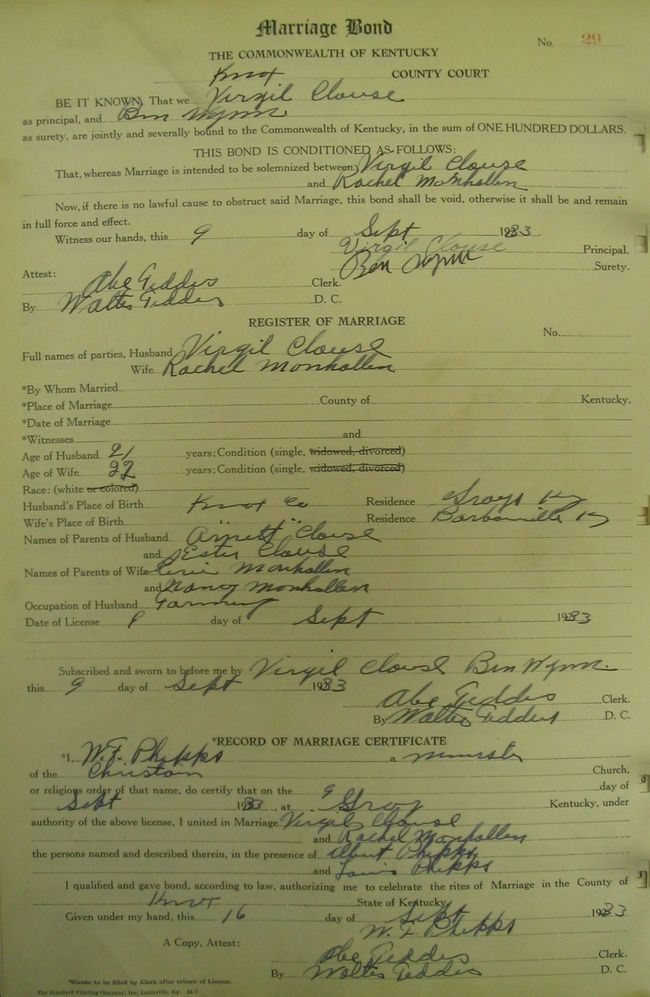 Marriage Bond
No. 29
THE COMMONWEALTH OF KENTUCKY
Knox COUNTY COURT
BE IT KNOWN, That we Virgil Clouse
as principal, and Ben Wynn
as surety, are jointly and severally bound to the Commonwealth of Kentucky, in the sum of ONE HUNDRED DOLLARS.
THIS BOND IS CONDITIONED AS FOLLOWS:
That, whereas Marriage is intended to be solemnized between Virgil Clouse
and Rachel Monhollen
Now, if there is no lawful cause to obstruct said Marriage, this bond shall be void, otherwise it shall be and remain
in full force and effect.
Witness our hands, this 9 day of Sept 1933.
Virgil Clouse Principal.
Ben Wynn Surety.
Attest:
Abe Geddes Clerk.
By Walter Geddes D. C.
REGISTER OF MARRIAGE
No.
Full names of parties, Husband Virgil Clouse
Wife Rachel Monhollen
*By Whom Married
*Place of Marriage County of Kentucky.
*Date of Marriage
*Witnesses and
Age of Husband 21 years; Condition (single, widowed, divorced)
Age of Wife 22 years; Condition (single, widowed, divorced)
Race: (white or colored)
Husband's Place of Birth Knox Co Residence Grays Ky
Wife's Place of Birth " " Residence Barbourville Ky
Names of Parents of Husband Clouse
and Ester Clouse
Names of Parents of Wife Monhollen
and Nancy Monhollen
Occupation of Husband Farming
Date of License 9 day of Sept 1933
Subscribed and sworn to before me by Virgil Clouse Ben Wynn.
this 9 day of Sept 1933
Abe Geddes Clerk.
By Walter Geddes D. C.
*RECORD OF MARRIAGE CERTIFICATE
*I, W. F. Phipps a minister
of the Christian Church,
or religious order of that name, do certify that on the 9 day of
Sept 1933, at Gray Kentucky, under
authority of the above license, I united in Marriage Virgil Clouse
and Rachel Monhollen
the persons named and described therein, in the presence of Albert Phipps
and Phipps
I qualified and gave bond, according to law, authorizing me to celebrate the rites of Marriage in the County of
Knox State of Kentucky
Given under my hand, this 16 day of Sept 1933
W. F. Phipps
A Copy, Attest:
Abe Geddes Clerk.
By Walter Geddes D. C.
*Blanks to be filled by Clerk after return of License.
The Standard Printing Company, Inc. Louisville, Ky.